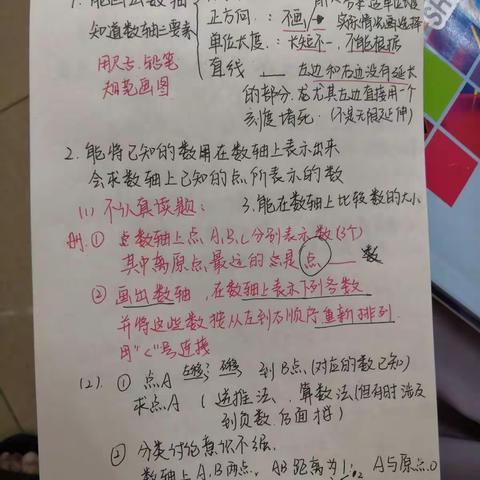 1. 能画出数轴
知道数轴三要素
用尺子.铅笔
规范画图
正方向.：不画
实际情况画选择
单位长度.：大短不一.不能根据
直线 左边和右边没有延长
的部分.尤其左边直接用一个
刻度堵死.（不是无限延伸）
2. 能将已知的数用在数轴上表示出来
会求数轴上已知的点所表示的数
(1) 不认真读题：
3.能在数轴上比较数的大小
例：① 数轴上点A,B,C分别表示数(3个)
其中离原点最远的点是 点 数
② 画出数轴，在数轴上表示下列各数
并将这些数按从左到右顺序重新排列.
用"<"号连接
(2). ① 点A 到B点(对应的数已知)
求点A（逆推法、算数法(但有时涉及
到负数.后面学)
② 分类讨论意识不强.
数轴上A,B两点、AB距离为1; A与原点O